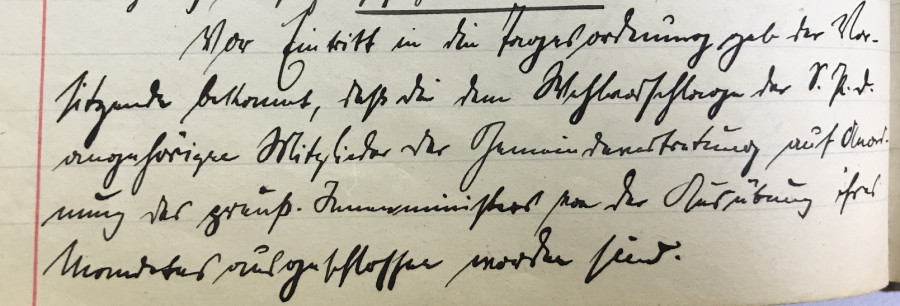 Vor Eintritt in die Tagesordnung gab der Vor-
sitzende bekannt, daß die dem Wahlvorschlage der S.P.D.
angehörigen Mitglieder der Gemeindevertretung auf Anord-
nung des preuß. Innenministers von der Ausübung ihres
Mandates ausgeschlossen worden sind.